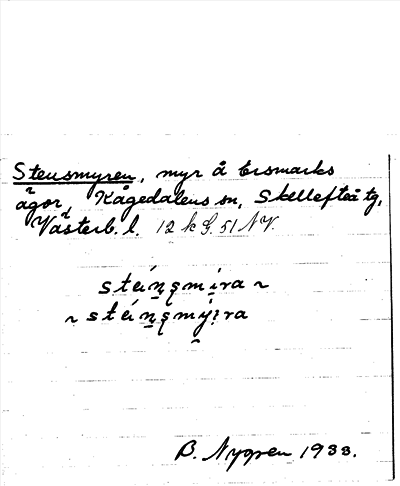 Stensmyren, myr å Ersmarks
ägor, Kågedalens sn, Skellefteå tg,
Västerb. l. 12 k G. 51 NV.
stéi̯n̥s̥mi̯ra ~
~ stéi̯n̥s̥mýi̯ra
B. Nygren 1933.